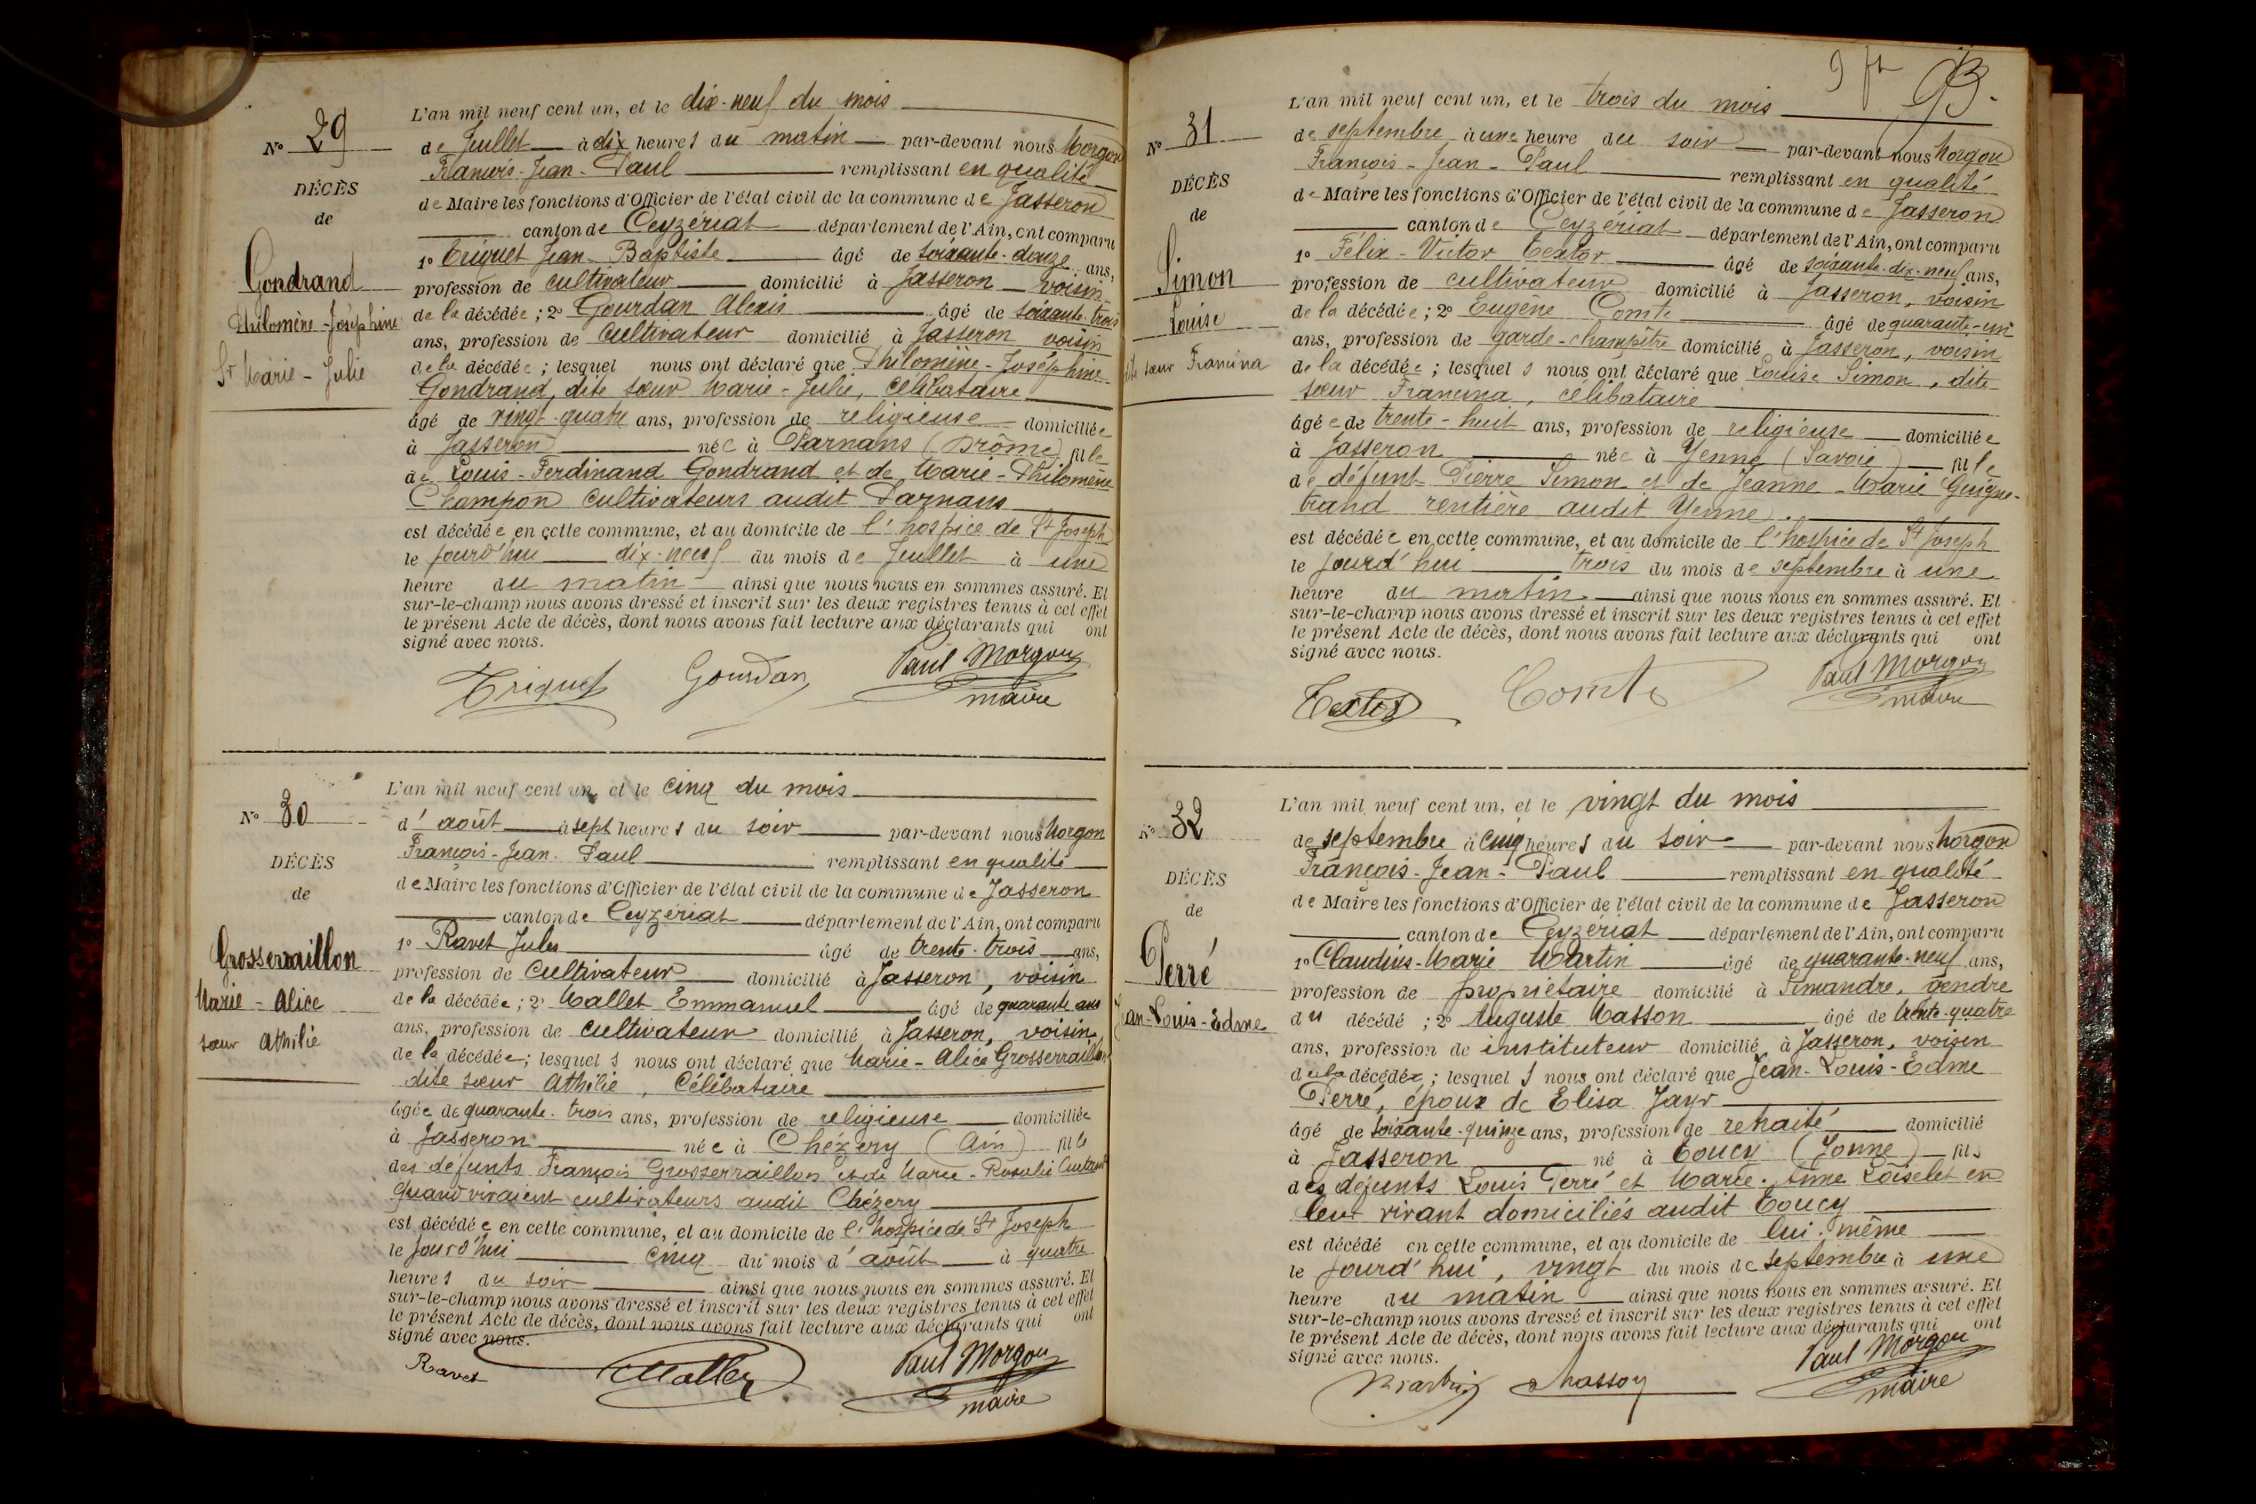 N° 29
DÉCÈS
de
Gondrand
Philomène-Joséphine
Sr Marie-Julie
L'an mil neuf cent un, et le dix-neuf du mois
de Juillet à dix heures du matin par-devant nous Morgon
François-Jean-Paul remplissant en qualité
de Maire les fonctions d'Officier de l'état civil de la commune de Jasseron
canton de Ceyzériat département de l'Ain, ont comparu
1° Triquet Jean-Baptiste âgé de soixante-douze ans,
profession de cultivateur domicilié à Jasseron voisin
de la décédée ; 2° Gourdan Alexis âgé de soixante-trois
ans, profession de cultivateur domicilié à Jasseron voisin
de la décédée ; lesquel nous ont déclaré que Philomène-Joséphine
Gondrand, dite sœur Marie-Julie, célibataire
âgé de vingt-quatre ans, profession de religieuse domiciliée
à Jasseron née à Parnans (Drôme) fille
de Louis-Ferdinand Gondrand et de Marie-Philomène
Champon cultivateurs audit Parnans
est décédée en cette commune, et au domicile de l'hospice de St Joseph
le jourd'hui dix-neuf du mois de Juillet à une
heure du matin ainsi que nous nous en sommes assuré. Et
sur-le-champ nous avons dressé et inscrit sur les deux registres tenus à cet effet
le présent Acte de décès, dont nous avons fait lecture aux déclarants qui ont
signé avec nous.
Triquet Gourdan Paul Morgon
maire
N° 30
DÉCÈS
de
Grosserraillon
Marie-Alice
sœur Athilie
L'an mil neuf cent un, et le cinq du mois
d'août à sept heures du soir par-devant nous Morgon
François-Jean-Paul remplissant en qualité
de Maire les fonctions d'Officier de l'état civil de la commune de Jasseron
canton de Ceyzériat département de l'Ain, ont comparu
1° Ravet Jules âgé de trente-trois ans,
profession de cultivateur domicilié à Jasseron, voisin
de la décédée ; 2° Mallet Emmanuel âgé de quarante ans
ans, profession de cultivateur domicilié à Jasseron, voisin
de la décédée ; lesquels nous ont déclaré que Marie-Alice Grosserraillon
dite sœur Athilie, célibataire
âgée de quarante-trois ans, profession de religieuse domiciliée
à Jasseron née à Chézery (Ain) fille
des défunts François Grosserraillon et de Marie-Rosalie
quand vivaient cultivateurs audit Chézery
est décédée en cette commune, et au domicile de l'hospice de St Joseph
le jourd'hui cinq du mois d'août à quatre
heures du soir ainsi que nous nous en sommes assuré. Et
sur-le-champ nous avons dressé et inscrit sur les deux registres tenus à cet effet
le présent Acte de décès, dont nous avons fait lecture aux déclarants qui ont
signé avec nous.
Ravet Mallet Paul Morgon
maire
93.
N° 31
DÉCÈS
de
Simon
Louise
dite sœur Francina
L'an mil neuf cent un, et le trois du mois
de septembre à une heure du soir par-devant nous Morgon
François-Jean-Paul remplissant en qualité
de Maire les fonctions d'Officier de l'état civil de la commune de Jasseron
canton de Ceyzériat département de l'Ain, ont comparu
1° Félix-Victor Textor âgé de soixante-dix-neuf ans,
profession de cultivateur domicilié à Jasseron, voisin
de la décédée ; 2° Eugène Comte âgé de quarante-un
ans, profession de garde-champêtre domicilié à Jasseron, voisin
de la décédée ; lesquels nous ont déclaré que Louise Simon, dite
sœur Francina, célibataire
âgée de trente-huit ans, profession de religieuse domiciliée
à Jasseron née à Yenne (Savoie) fille
de défunt Pierre Simon et de Jeanne-Marie Guigue-
trand rentière audit Yenne.
est décédée en cette commune, et au domicile de l'hospice de St Joseph
le jourd'hui trois du mois de septembre à une
heure du matin ainsi que nous nous en sommes assuré. Et
sur-le-champ nous avons dressé et inscrit sur les deux registres tenus à cet effet
le présent Acte de décès, dont nous avons fait lecture aux déclarants qui ont
signé avec nous.
Textor Comte Paul Morgon
maire
N° 32
DÉCÈS
de
Perré
Jean-Louis-Edme
L'an mil neuf cent un, et le vingt du mois
de septembre à cinq heures du soir par-devant nous Morgon
François-Jean-Paul remplissant en qualité
de Maire les fonctions d'Officier de l'état civil de la commune de Jasseron
canton de Ceyzériat département de l'Ain, ont comparu
1° Claudius-Marie Martin âgé de quarante-neuf ans,
profession de propriétaire domicilié à Simandre, gendre
du décédé ; 2° Auguste Masson âgé de trente-quatre
ans, profession de instituteur domicilié à Jasseron, voisin
de la décédée ; lesquels nous ont déclaré que Jean-Louis-Edme
Perré, époux de Elisa Jayr
âgé de soixante-quinze ans, profession de retraité domicilié
à Jasseron né à Toucy (Yonne) fils
des défunts Louis Perré et Marie-Anne Loiselet en
leur vivant domiciliés audit Toucy
est décédé en cette commune, et au domicile de lui-même
le jourd'hui, vingt du mois de septembre à une
heure du matin ainsi que nous nous en sommes assuré. Et
sur-le-champ nous avons dressé et inscrit sur les deux registres tenus à cet effet
le présent Acte de décès, dont nous avons fait lecture aux déclarants qui ont
signé avec nous.
Martin Masson Paul Morgon
maire